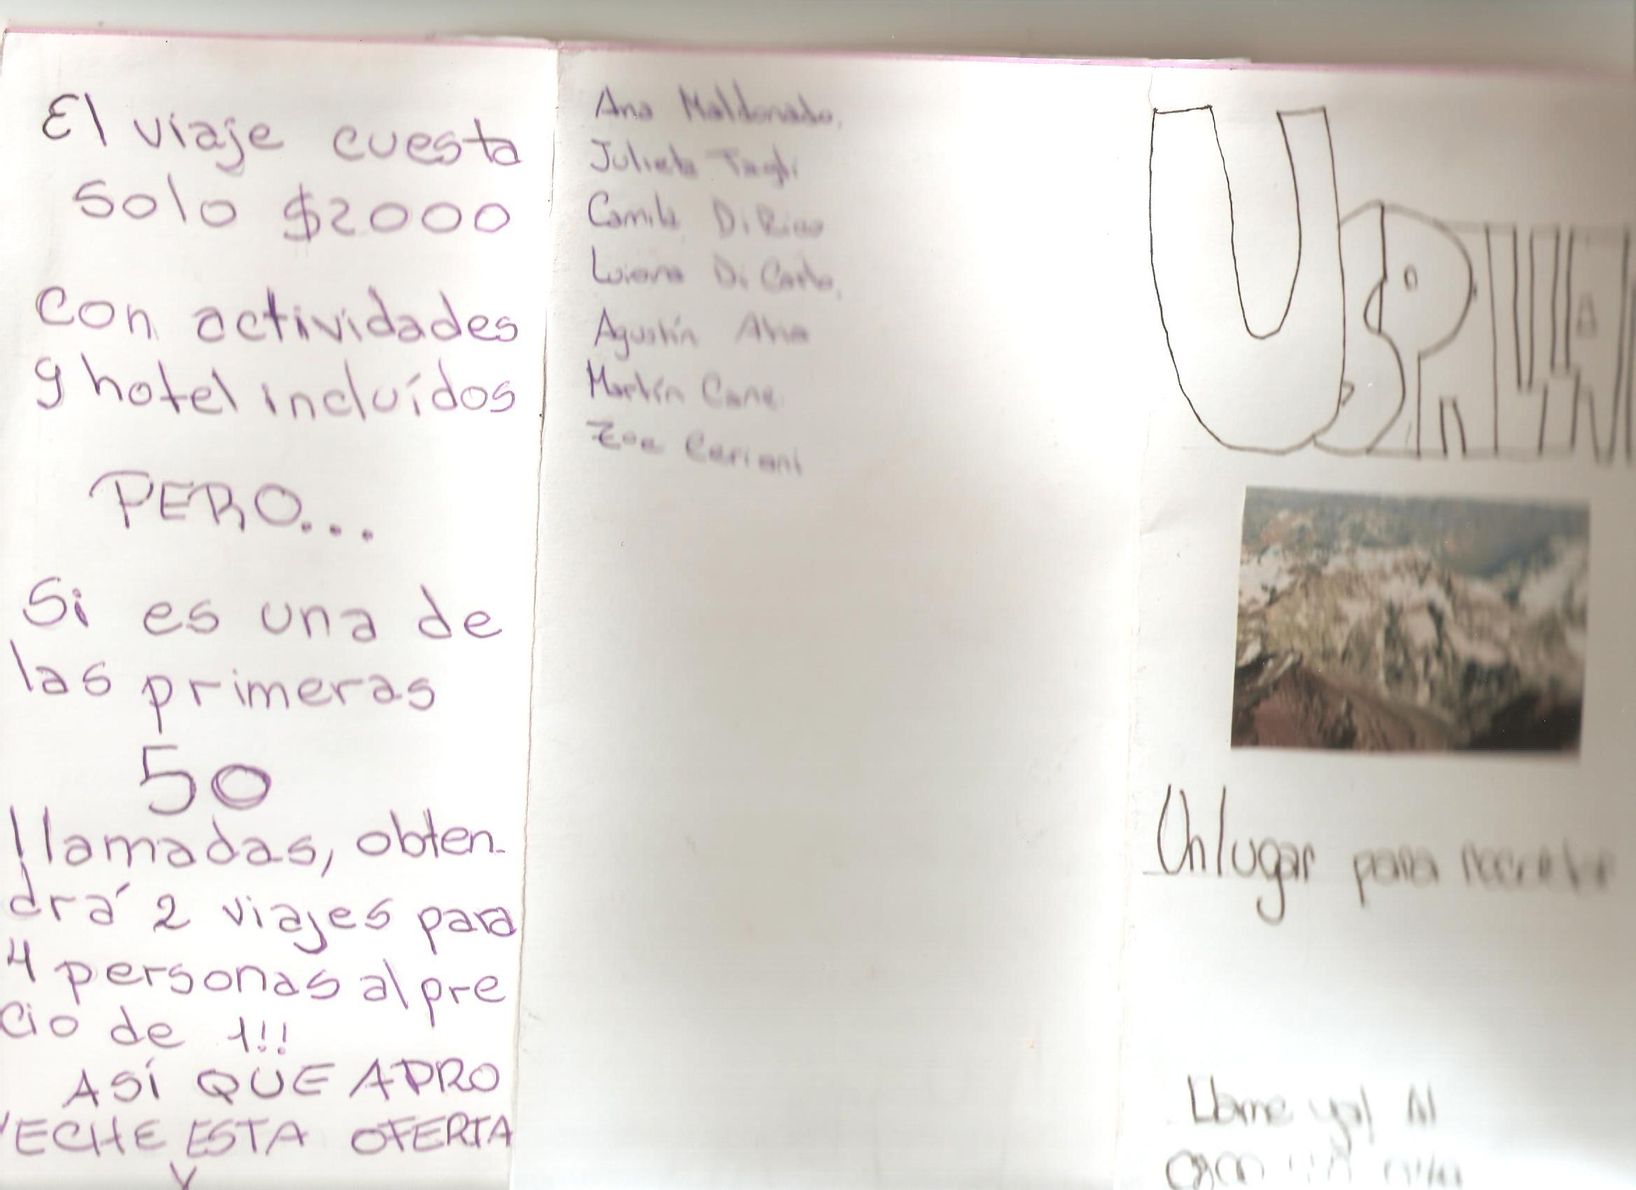 El viaje cuesta
solo $2000
con actividades
y hotel incluídos
PERO...
Si es una de
las primeras
50
llamadas, obten-
drá 2 viajes para
4 personas al pre
cio de 1!!
ASÍ QUE APRO
VECHE ESTA OFERTA
Y
Ana Maldonado,
Julieta Tagli
Camila Di Rico
Luiana Di Carlo,
Agustín
Martín Cane
Zoe Ceriani
USPALLA
Un lugar para
Llame ya! Al
0800